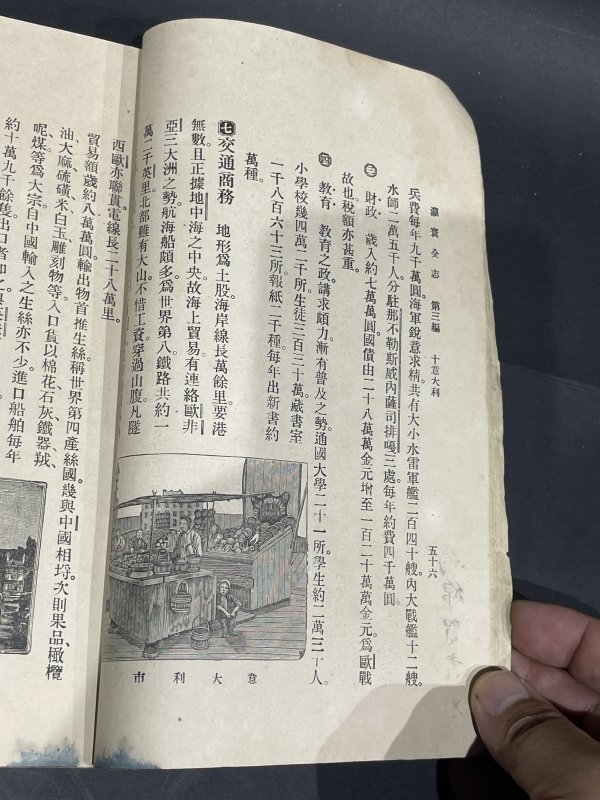 瀛寰全志　第三編　十意大利　五十六
兵費每年九千萬圓海軍銳意求精共有大小水雷軍艦二百四十艘內大戰艦十二艘
水師二萬五千人分駐那不勒斯威內薩司排嘎三處每年約費四千萬圓
㊂財政　歲入約七萬萬圓國債由二十八萬萬金元增至一百二十萬萬金元爲歐戰
故也稅額亦甚重
㊃教育　教育之政講求頗力漸有普及之勢通國大學二十一所學生約二萬三千人
小學校幾四萬二千所生徒三百三十萬藏書室
一千八百六十三所報紙二千種每年出新書約
萬種
㊆交通商務　地形爲土股海岸線長萬餘里要港
無數且正據地中海之中央故海上貿易有連絡歐非
亞三大洲之勢航海船頗多爲世界第八鐵路共約一
萬二千英里北部雖有大山不惜工資穿過山腹凡隧
意大利市
西歐亦聯貫電線長二十八萬里
貿易額歲約八萬萬圓輸出物首推生絲稱世界第四產絲國幾與中國相埒次則果品、橄欖
油、大麻、硫磺、米、白玉、雕刻物等入口貨以棉花、石灰、鐵器、羢
呢、煤等爲大宗自中國輸入之生絲亦不少進口船舶每年
約十萬九千餘隻出口者